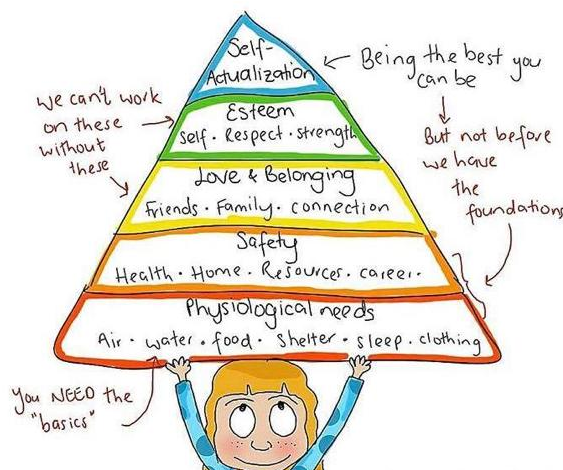 Self-
Actualization
Being the best you
can be
Esteem
Self · Respect · strength
We can't work
on these
without
these
But not before
we have
the
foundations
Love & Belonging
Friends · Family · connection
Safety
Health · Home · Resources · career ·
Physiological needs
Air · water · food · Shelter · sleep · clothing
You NEED the
"basics"